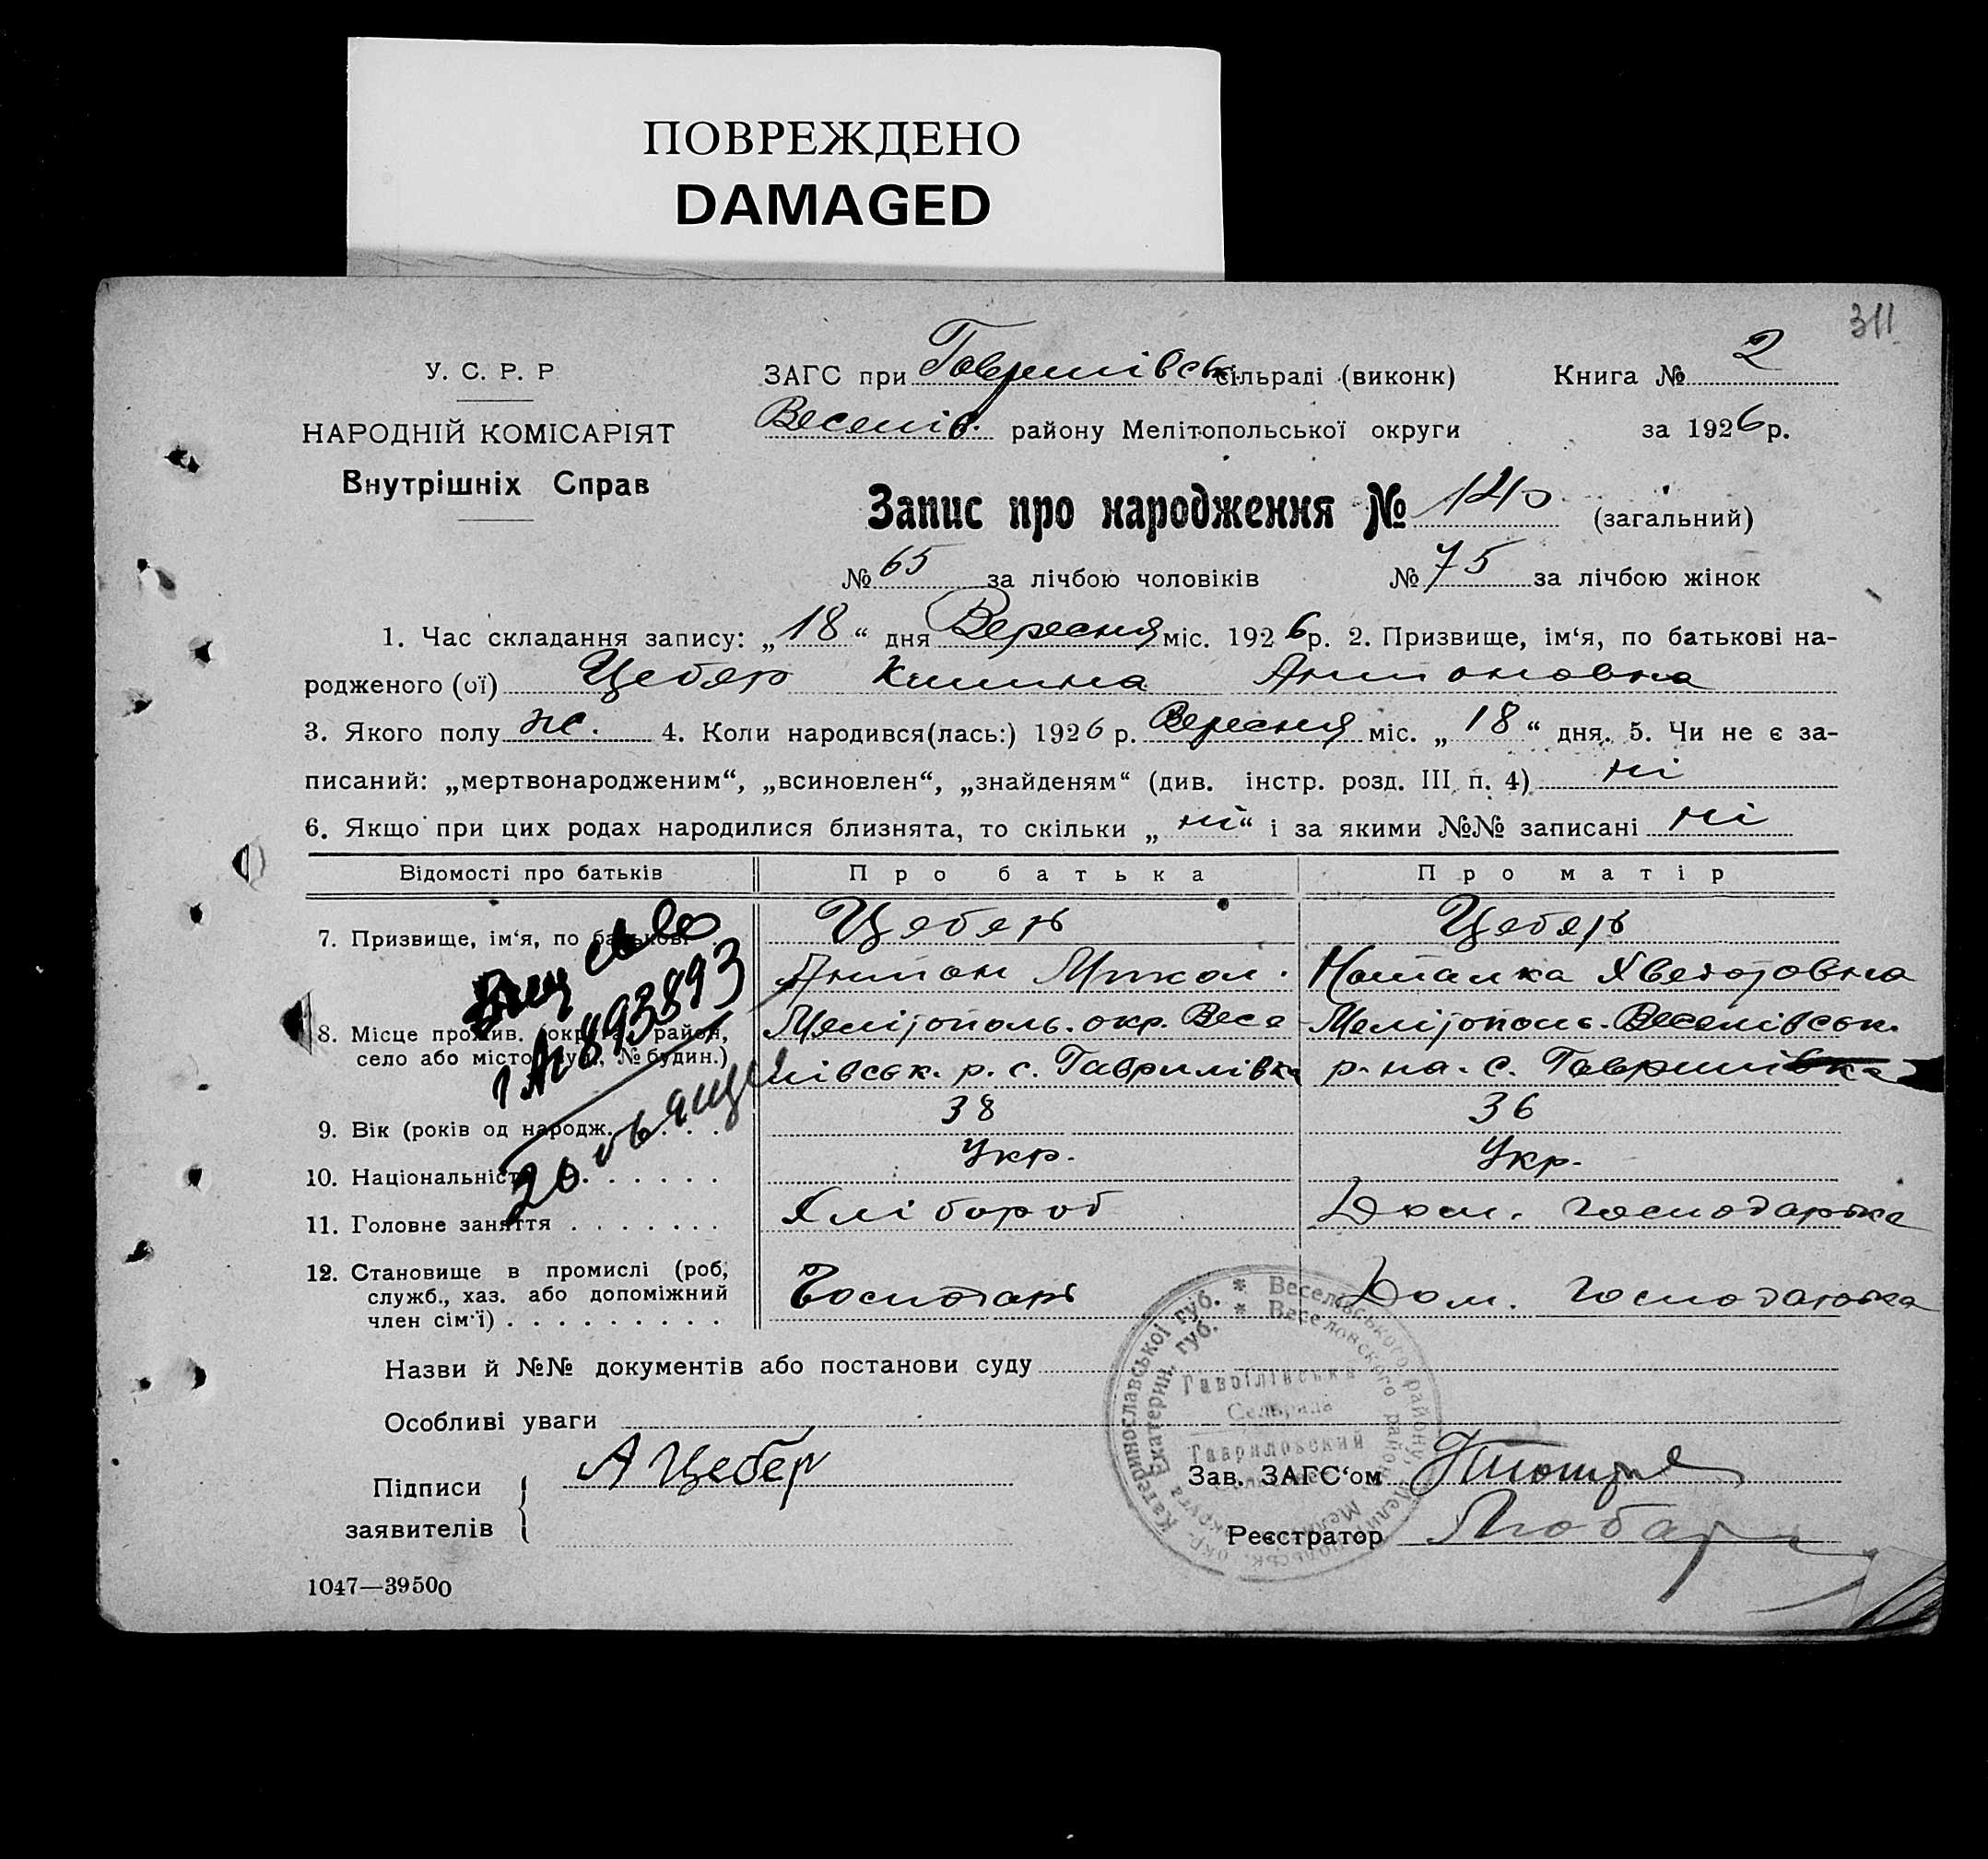 ПОВРЕЖДЕНО
DAMAGED
311
У. С. Р. Р
НАРОДНІЙ КОМІСАРІЯТ
Внутрішніх Справ
ЗАГС при Гаврилівськ. сільраді (виконк) Книга № 2
Веселів. району Мелітопольської округи за 1926 р.
Запис про народження № 140 (загальний)
№ 65 за лічбою чоловіків № 75 за лічбою жінок
1. Час складання запису: „ 18 “ дня Вересня міс. 1926 р. 2. Призвище, ім‘я, по батькові на-
родженого (ої) Цебер Антоновна
3. Якого полу ж. 4. Коли народився(лась:) 1926 р. Вересня міс. „ 18 “ дня. 5. Чи не є за-
писаний: „мертвонародженим“, „всиновлен“, „знайденям“ (див. інстр. розд. III п. 4) ні
6. Якщо при цих родах народилися близнята, то скільки „ ні “ і за якими №№ записані ні
Відомості про батьків Про батька Про матір
7. Призвище, ім‘я, по батькові Цебер Цебер
Антон Микол. Наталка Хведоровна
8. Місце прожив. (округа, район, Мелітополь. окр. Весе Мелітополь. Веселівськ.
село або місто, вул., № будин.) лівськ. р. с. Гаврилівка р-на. с. Гаврилівка
№ 893893
9. Вік (років од народж. 38 36
10. Національність Укр. Укр.
11. Головне заняття Хлібороб Дом. господарка
12. Становище в промислі (роб,
служб., хаз. або допоміжний Господарь Дом. господарка
член сім‘ї)
Назви й №№ документів або постанови суду
Особливі уваги
Підписи А Цебер Зав. ЗАГС‘ом
заявителів Реєстратор
Катеринославської губ. * Веселівського району, Мелітопольськ. окр.
Екатерин. губ. * Веселовского района
Гаврилівська
Сельрада
Гавриловский
1047—39500